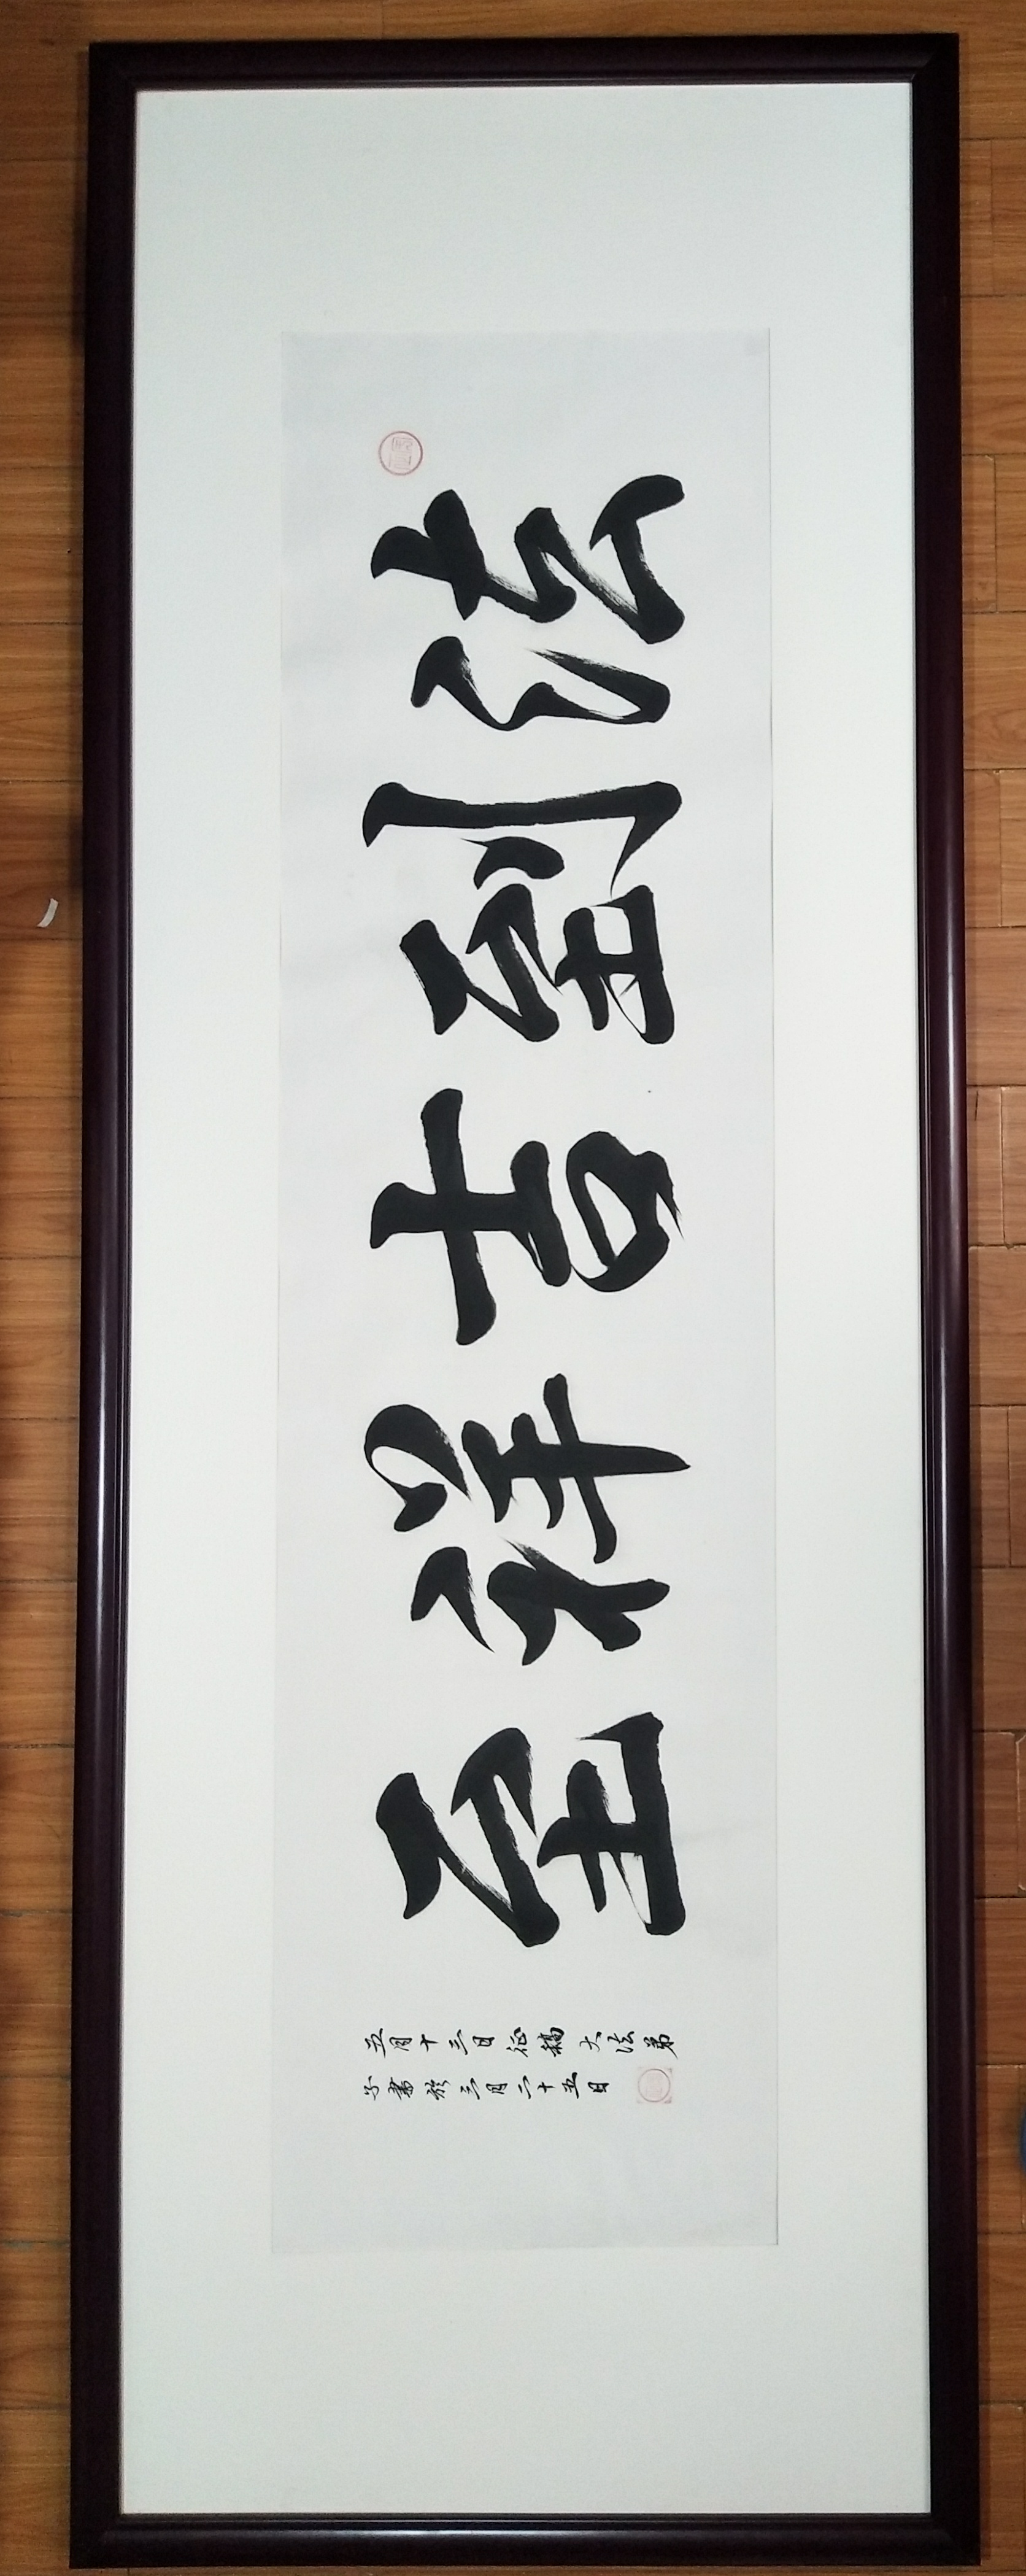 法到吉祥至
五月十三日征稿大法弟
子書於三月二十五日